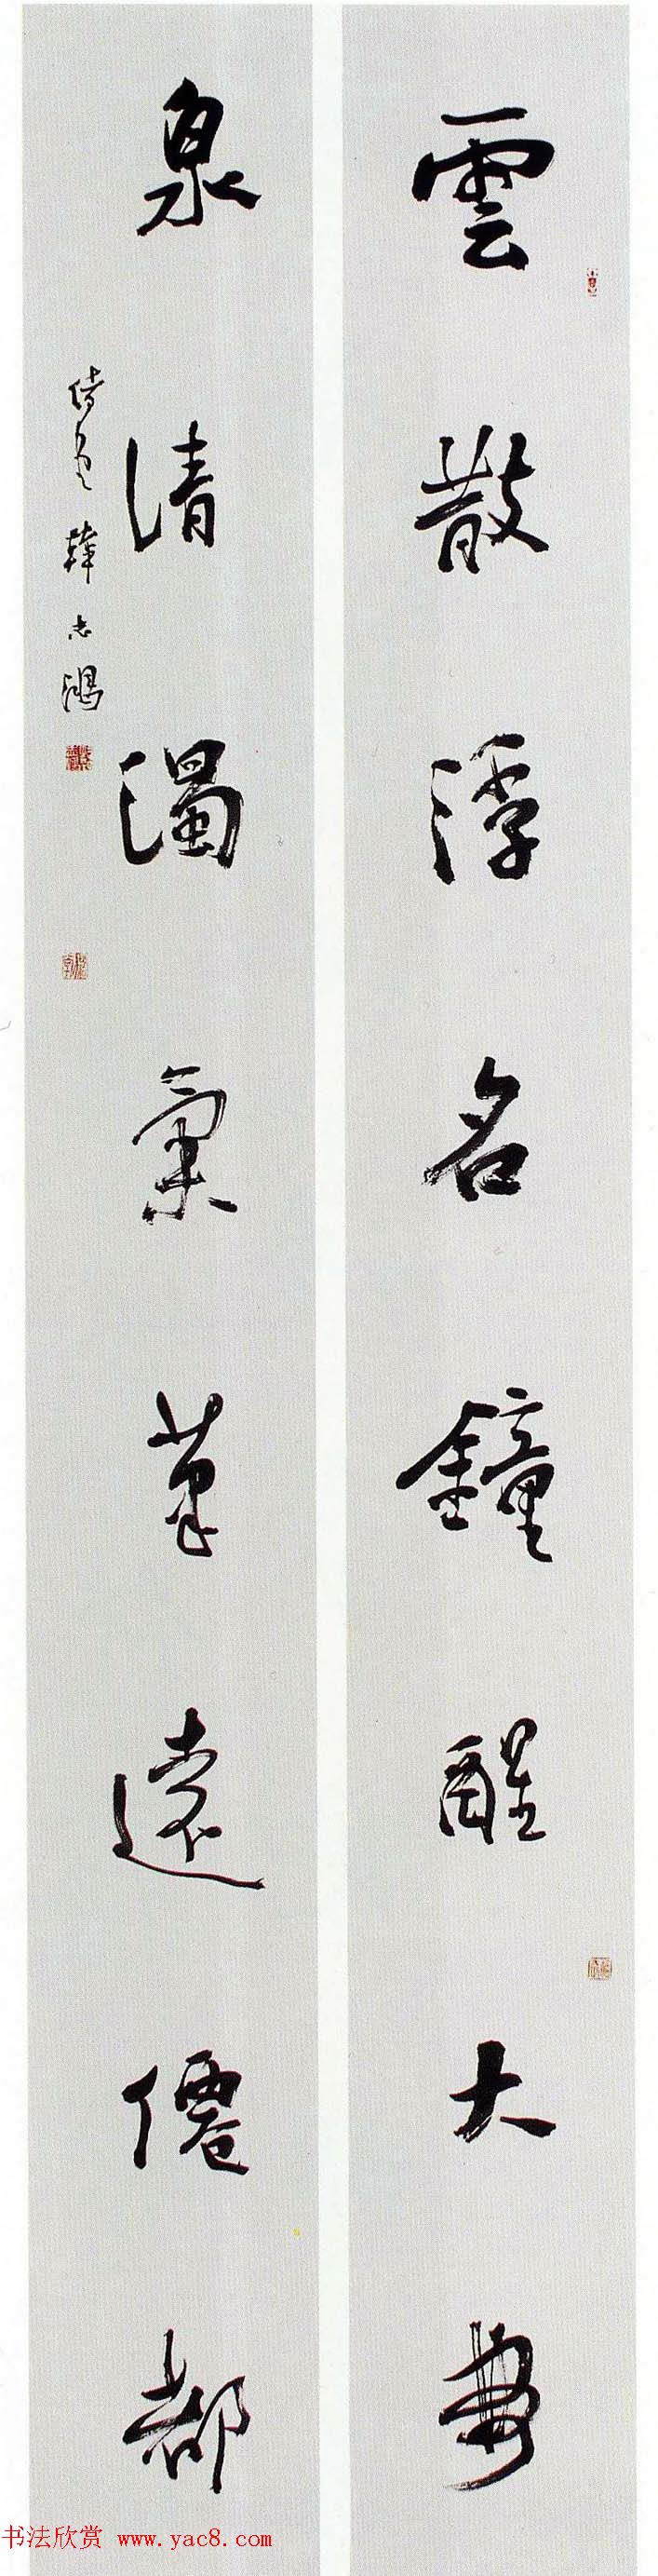 雲散浮名鐘醒大夢
泉清濁氣遠僊都
韓志鴻
书法欣赏 www.yac8.com